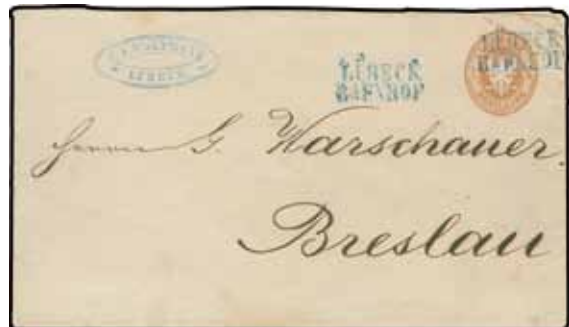 LÜBECK
LÜBECK
BAHNHOF
LÜBECK
BAHNHOF
Herrn G. Warschauer.
Breslau